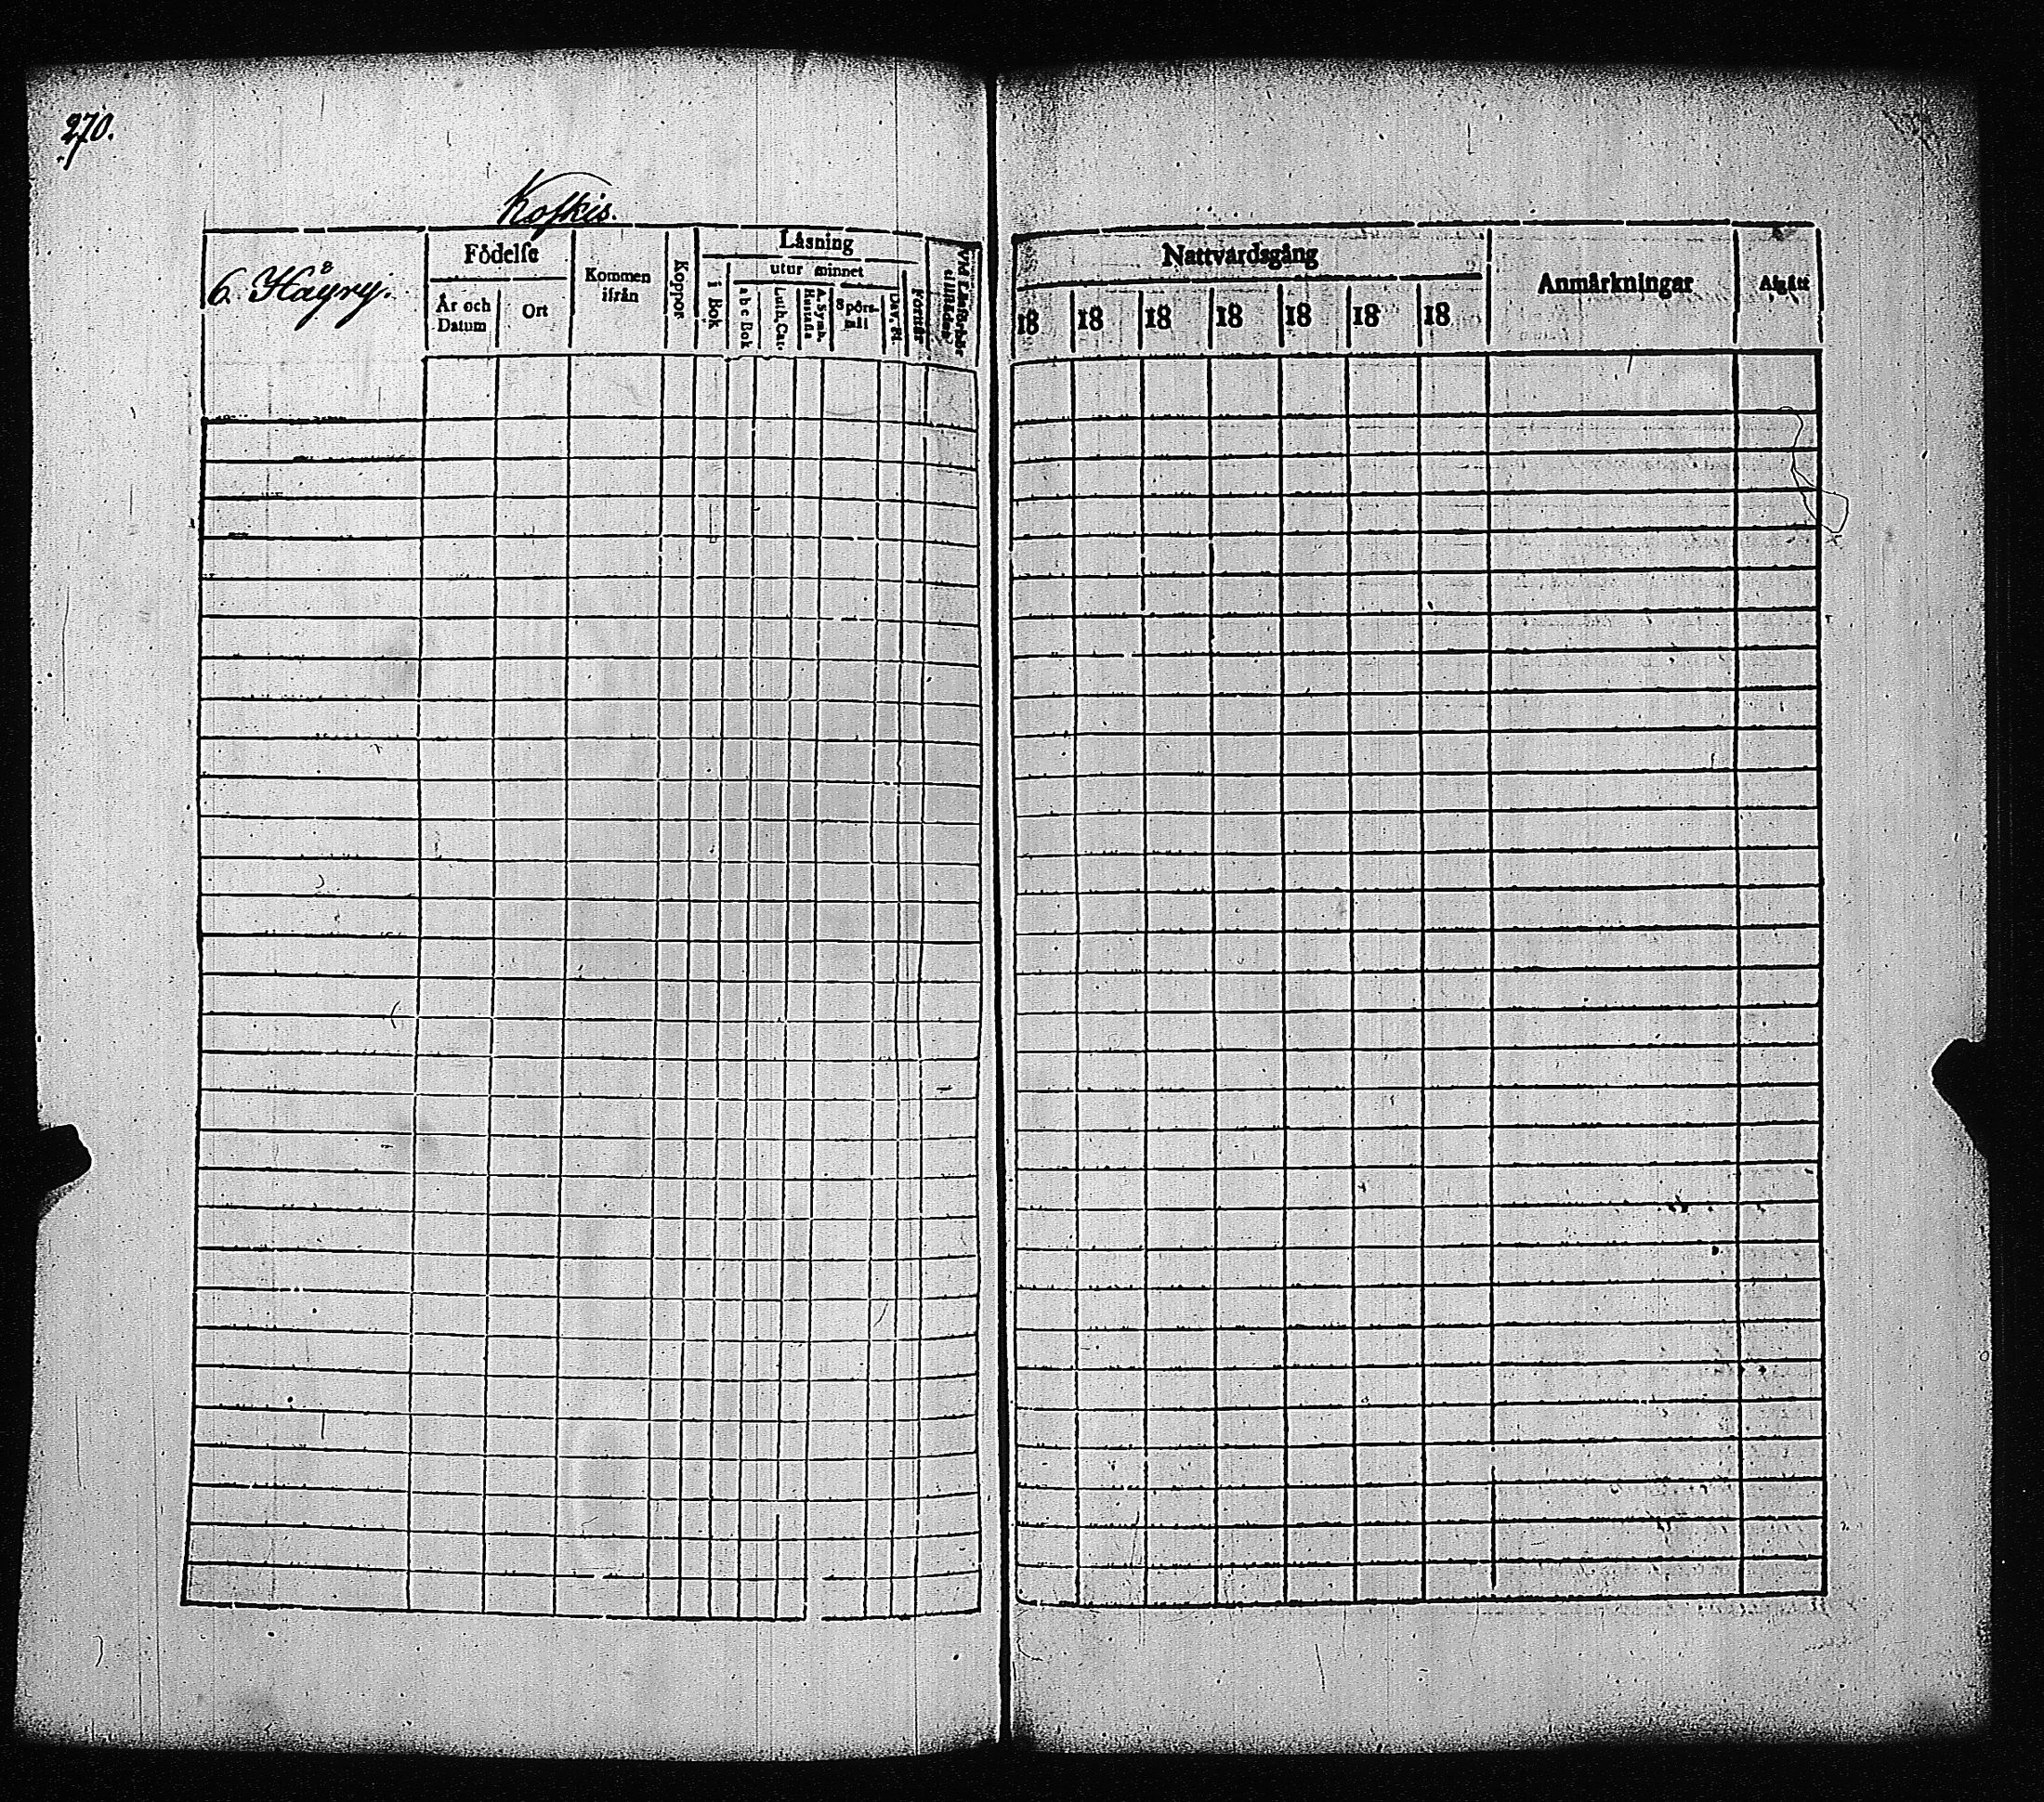 270.
Koskis.
6. Häyry.
Födelse
År och Datum
Ort
Kommen ifrån
Koppor
Läsning
i Bok
utur minnet
a b c Bok
Luth. Cat.
A. Symb. Hustafla
Spörsmål
Dav. Ps.
Förstår
Nattvardsgång
18 18 18 18 18 18 18
Anmärkningar
Afgått